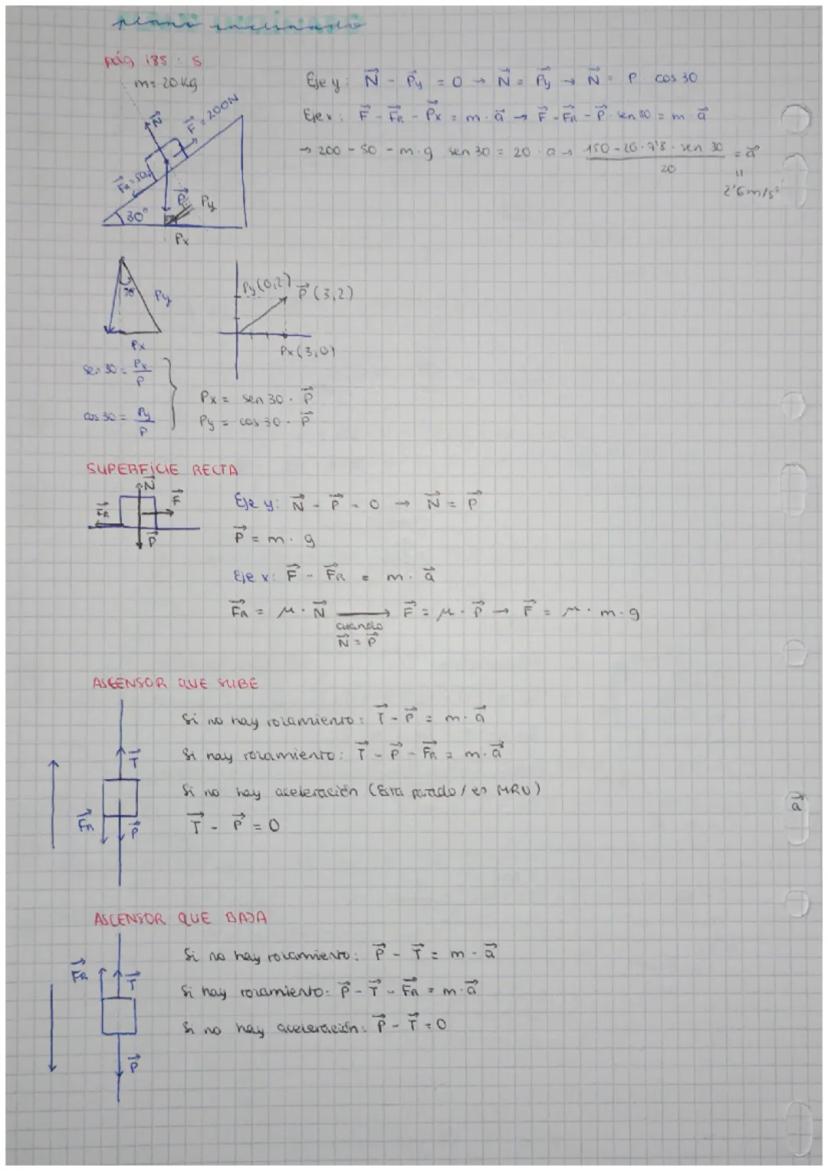 plano inclinado
pág 185: 5
m = 20 kg
N⃗
F⃗ = 200N
F⃗R = 50N
P⃗
Py
30°
Px
Eje y: N⃗ - P⃗y = 0 → N⃗ = P⃗y → N⃗ = P cos 30
Eje x: F⃗ - F⃗R - P⃗x = m · a⃗ → F⃗ - F⃗R - P⃗ · sen 30 = m · a⃗
→ 200 - 50 - m · g sen 30 = 20 · a → (150 - 20 · 9'8 · sen 30) / 20 = a⃗
"
2'6 m/s²
30
Py
Px
Py (0,2)
P⃗ (3,2)
Px (3,0)
sen 30 = Px / P
cos 30 = Py / P
Px = sen 30 · P⃗
Py = cos 30 · P⃗
SUPERFICIE RECTA
N⃗
F⃗R
F⃗
P⃗
Eje y: N⃗ - P⃗ = 0 → N⃗ = P⃗
P⃗ = m · g
Eje x: F⃗ - F⃗R = m · a⃗
F⃗R = μ · N⃗ → F⃗ = μ · P⃗ → F⃗ = μ · m · g
cuando
N⃗ = P⃗
ASCENSOR QUE SUBE
T⃗
F⃗R
P⃗
Si no hay rozamiento: T⃗ - P⃗ = m · a⃗
Si hay rozamiento: T⃗ - P⃗ - F⃗R = m · a⃗
Si no hay aceleración (Está parado / es MRU)
T⃗ - P⃗ = 0
a⃗
ASCENSOR QUE BAJA
F⃗R
T⃗
P⃗
Si no hay rozamiento: P⃗ - T⃗ = m · a⃗
Si hay rozamiento: P⃗ - T⃗ - F⃗R = m · a⃗
Si no hay aceleración: P⃗ - T⃗ = 0